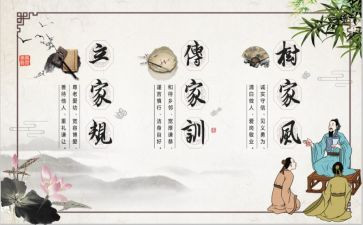 樹家風
诚实守信、见义勇为
清白做人、爱岗敬业
傳家訓
和待乡邻、宽厚谦恭
谨言慎行、洁身自好
立家規
尊老爱幼、宽容博爱
善待他人、重礼谦让